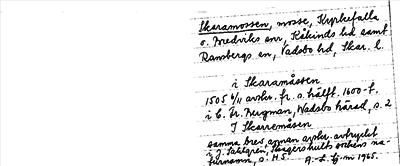 Skaramossen, mosse, Kyrkefalla
o. Fredriks snr, Kåkinds hd samt
Ransbergs sn, Vadsbo hd, Skar. l.
i Skaramåssen
1505 6/11 avskr. fr. s. hälft. 1600-t.
i C. Fr. Bergman, Wadsbo härad, s. 2
I Skarremåsen
samma brev annan avskr. avtryckt
i J. Sahlgren, Skagershults sockens na-
turnamn, s. 45. A.-L. 1965.